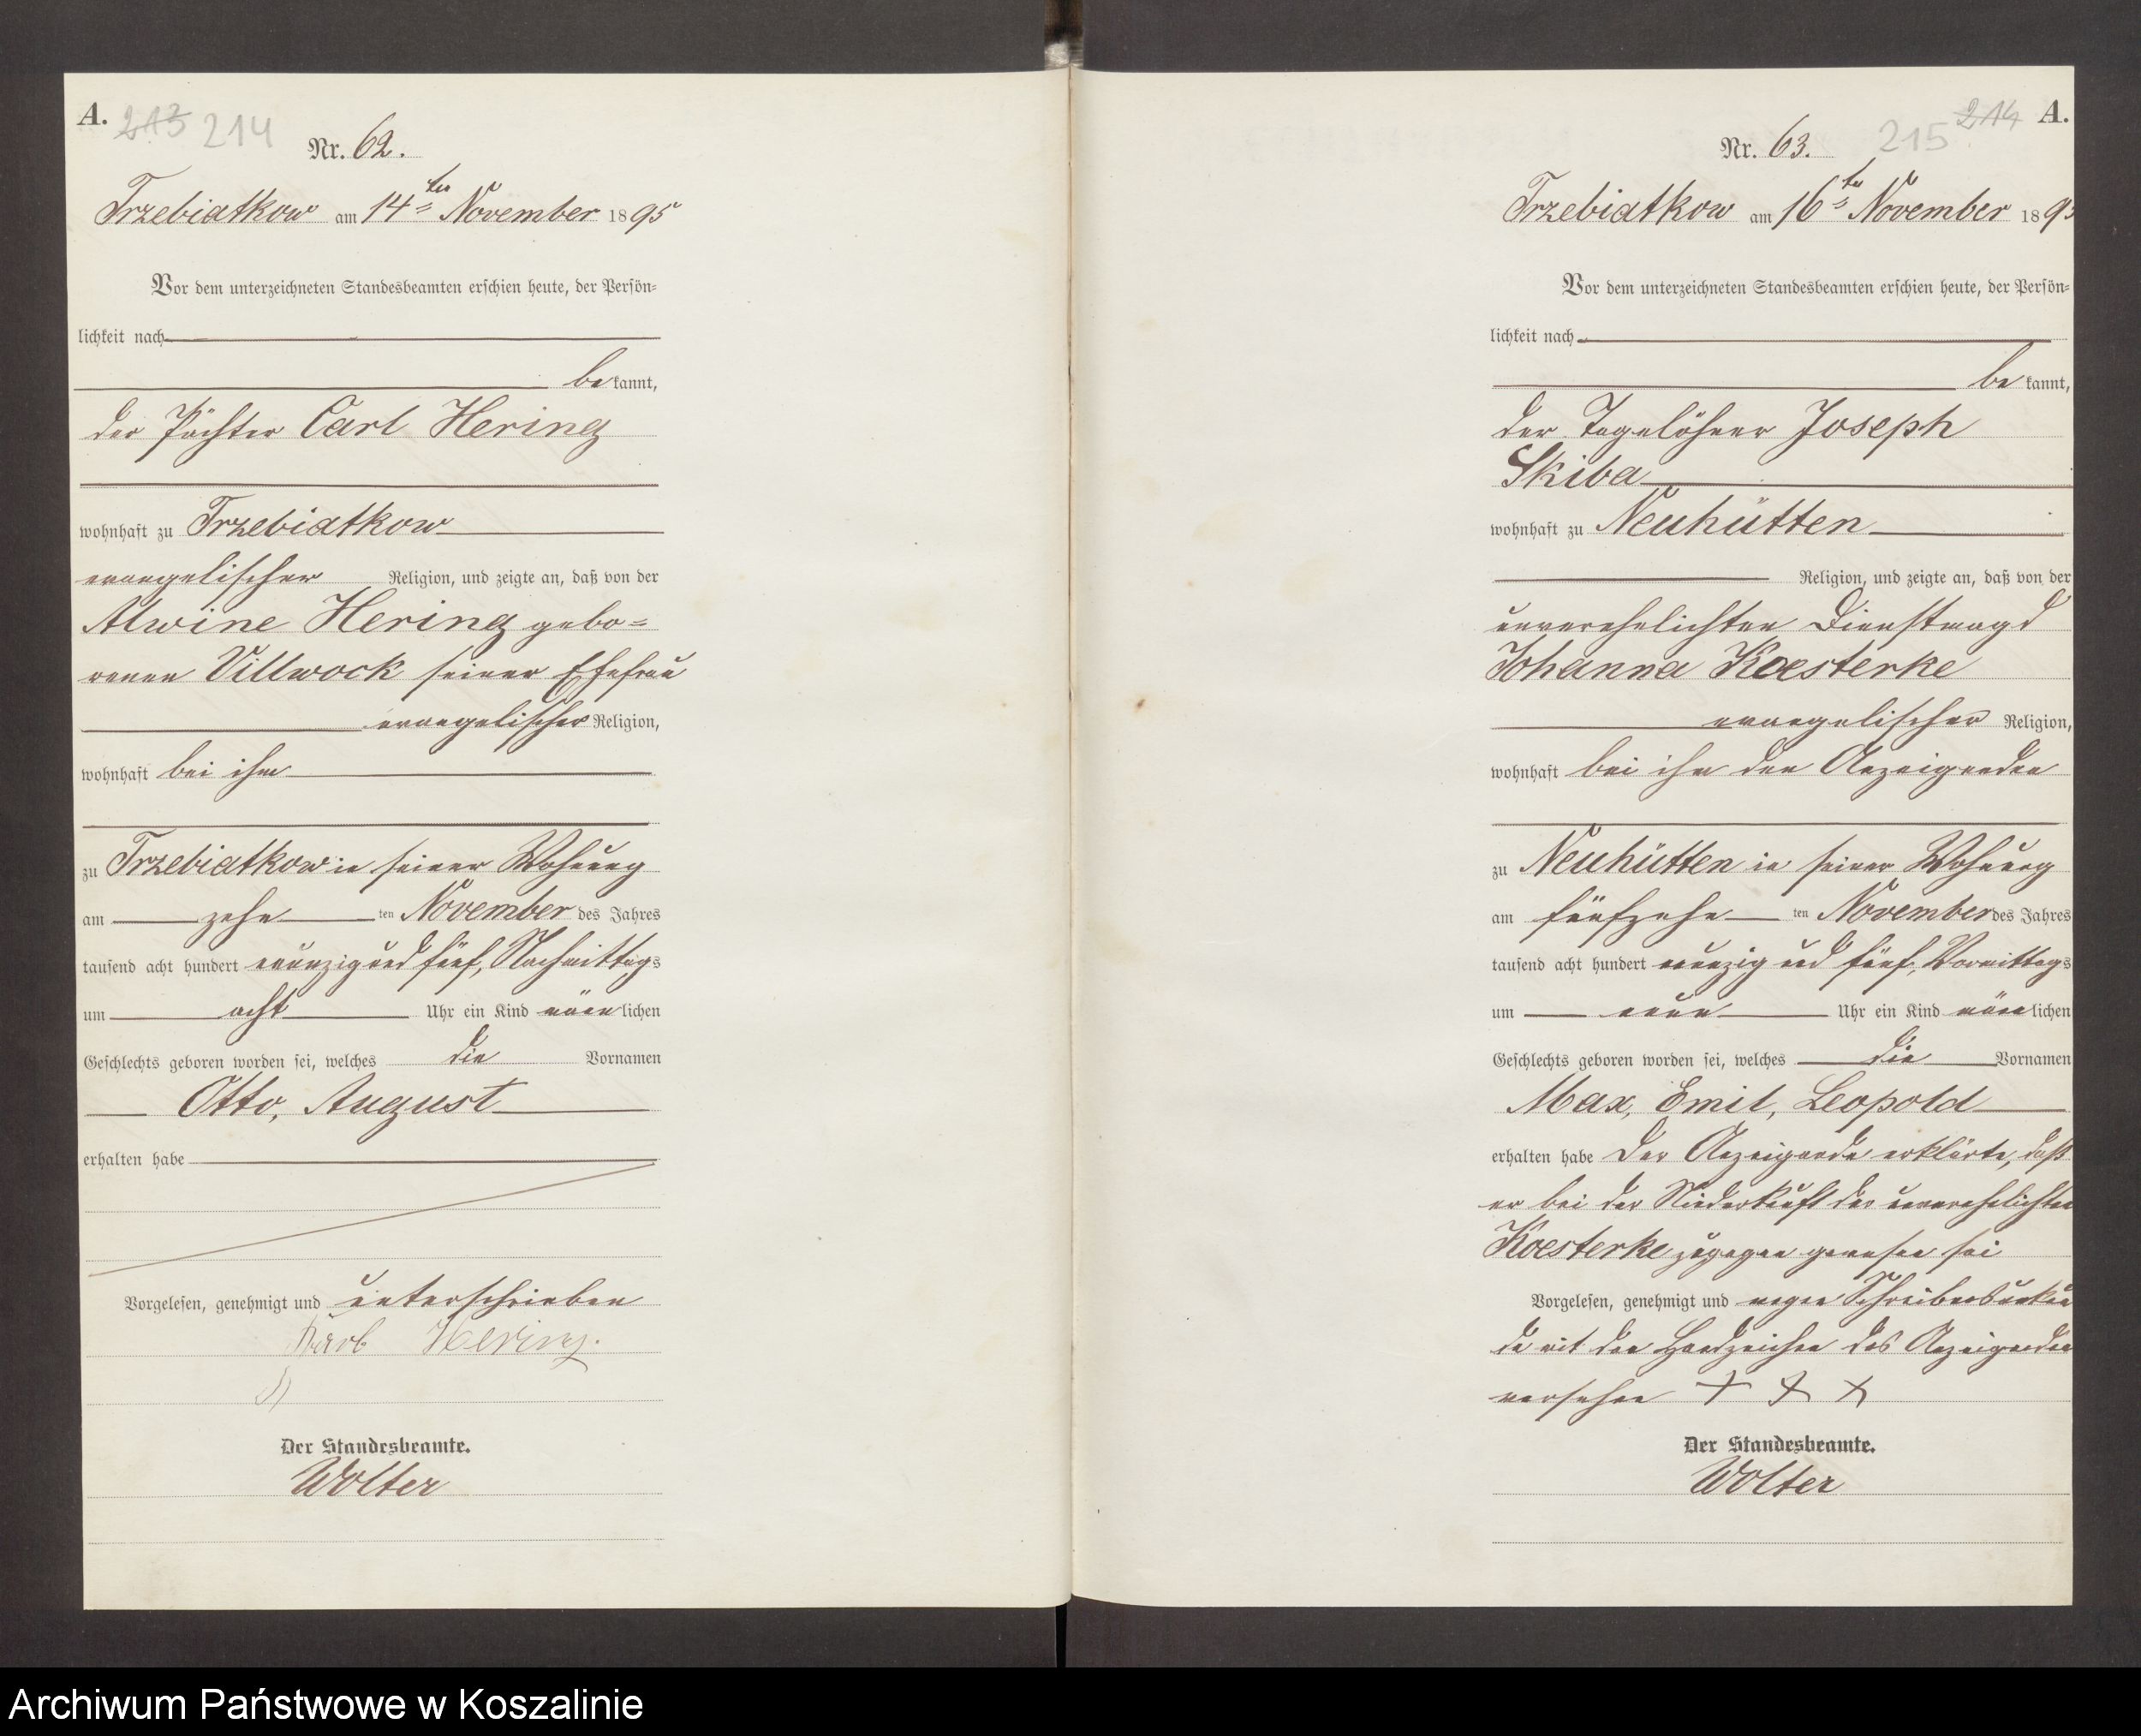 A. 213 214
Nr. 62.
Trzebiatkow am 14ten November 1895
Vor dem unterzeichneten Standesbeamten erschien heute, der Persön=
lichkeit nach
bekannt,
der Pächter Carl Hering
wohnhaft zu Trzebiatkow
evangelischer Religion, und zeigte an, daß von der
Alwine Hering gebo=
renen Villwock seiner Ehefrau
evangelischer Religion,
wohnhaft bei ihm
zu Trzebiatkow in seiner Wohnung
am zehnten November des Jahres
tausend acht hundert neunzig und fünf, Nachmittags
um acht Uhr ein Kind männlichen
Geschlechts geboren worden sei, welches die Vornamen
Otto, August
erhalten habe
Vorgelesen, genehmigt und unterschrieben
Hering.
Der Standesbeamte.
Wolter
214 A.
Nr. 63. 215
Trzebiatkow am 16ten November 189
Vor dem unterzeichneten Standesbeamten erschien heute, der Persön=
lichkeit nach
bekannt,
der Tagelöhner Joseph
Skiba
wohnhaft zu Neuhütten
Religion, und zeigte an, daß von der
unverehelichten Dienstmagd
Johanna Koesterke
evangelischer Religion,
wohnhaft bei ihm dem Anzeigenden
zu Neuhütten in seiner Wohnung
am fünfzehnten November des Jahres
tausend acht hundert neunzig und fünf, Vormittags
um neun Uhr ein Kind männlichen
Geschlechts geboren worden sei, welches die Vornamen
Max, Emil, Leopold
erhalten habe Der Anzeigende erklärte, daß
er bei der Niederkunft der unverehelichten
Koesterke zugegen gewesen sei
Vorgelesen, genehmigt und wegen Schreibensunkun
de mit den Handzeichen des Anzeigenden
versehen + + +
Der Standesbeamte.
Wolter
Archiwum Państwowe w Koszalinie